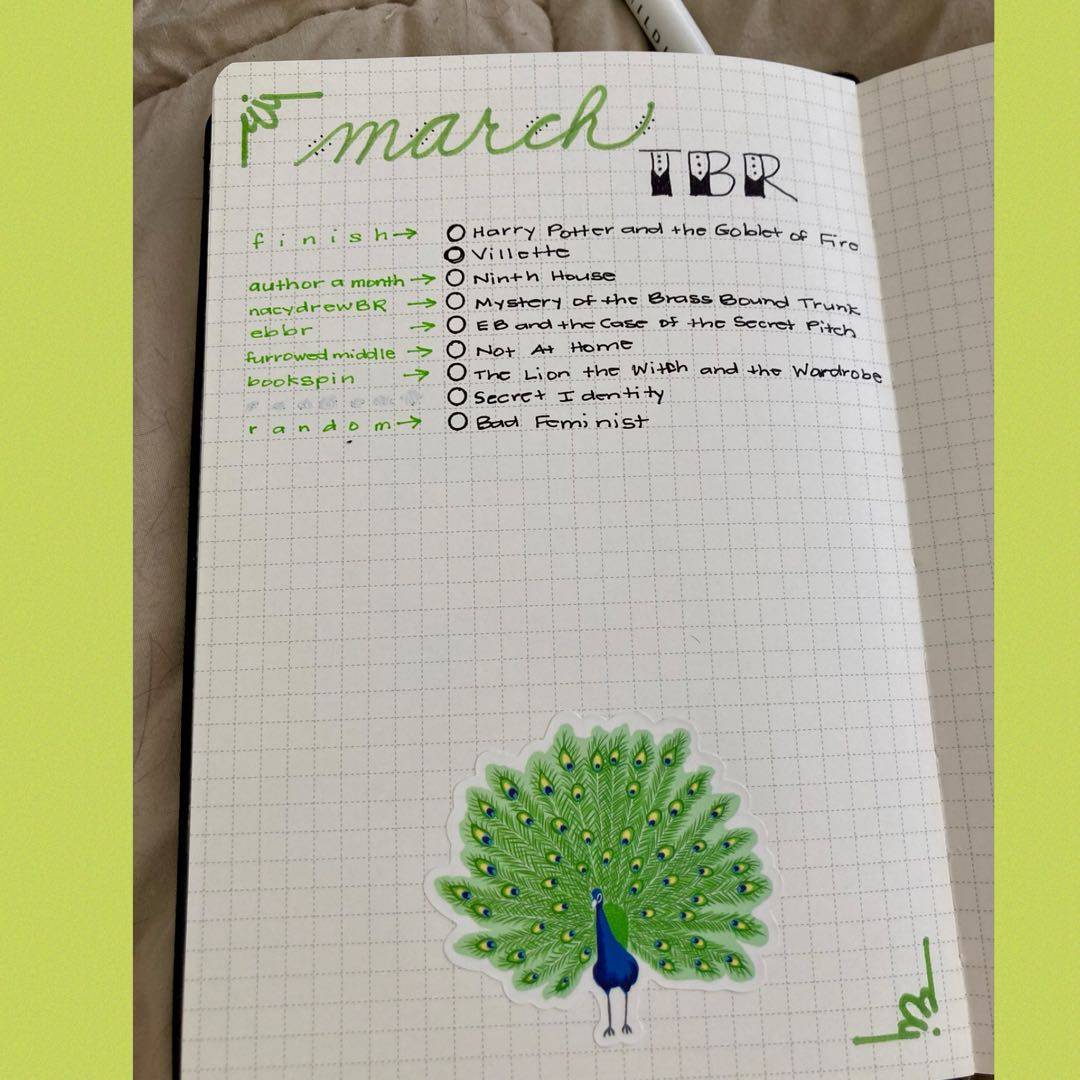 march
TBR
finish → Harry Potter and the Goblet of Fire
Villette
author a month → Ninth House
nacydrewBR → Mystery of the Brass Bound Trunk
ebbr → EB and the Case of the Secret Pitch
furrowed middle → Not At Home
bookspin → The Lion the Witch and the Wardrobe
Secret Identity
random → Bad Feminist